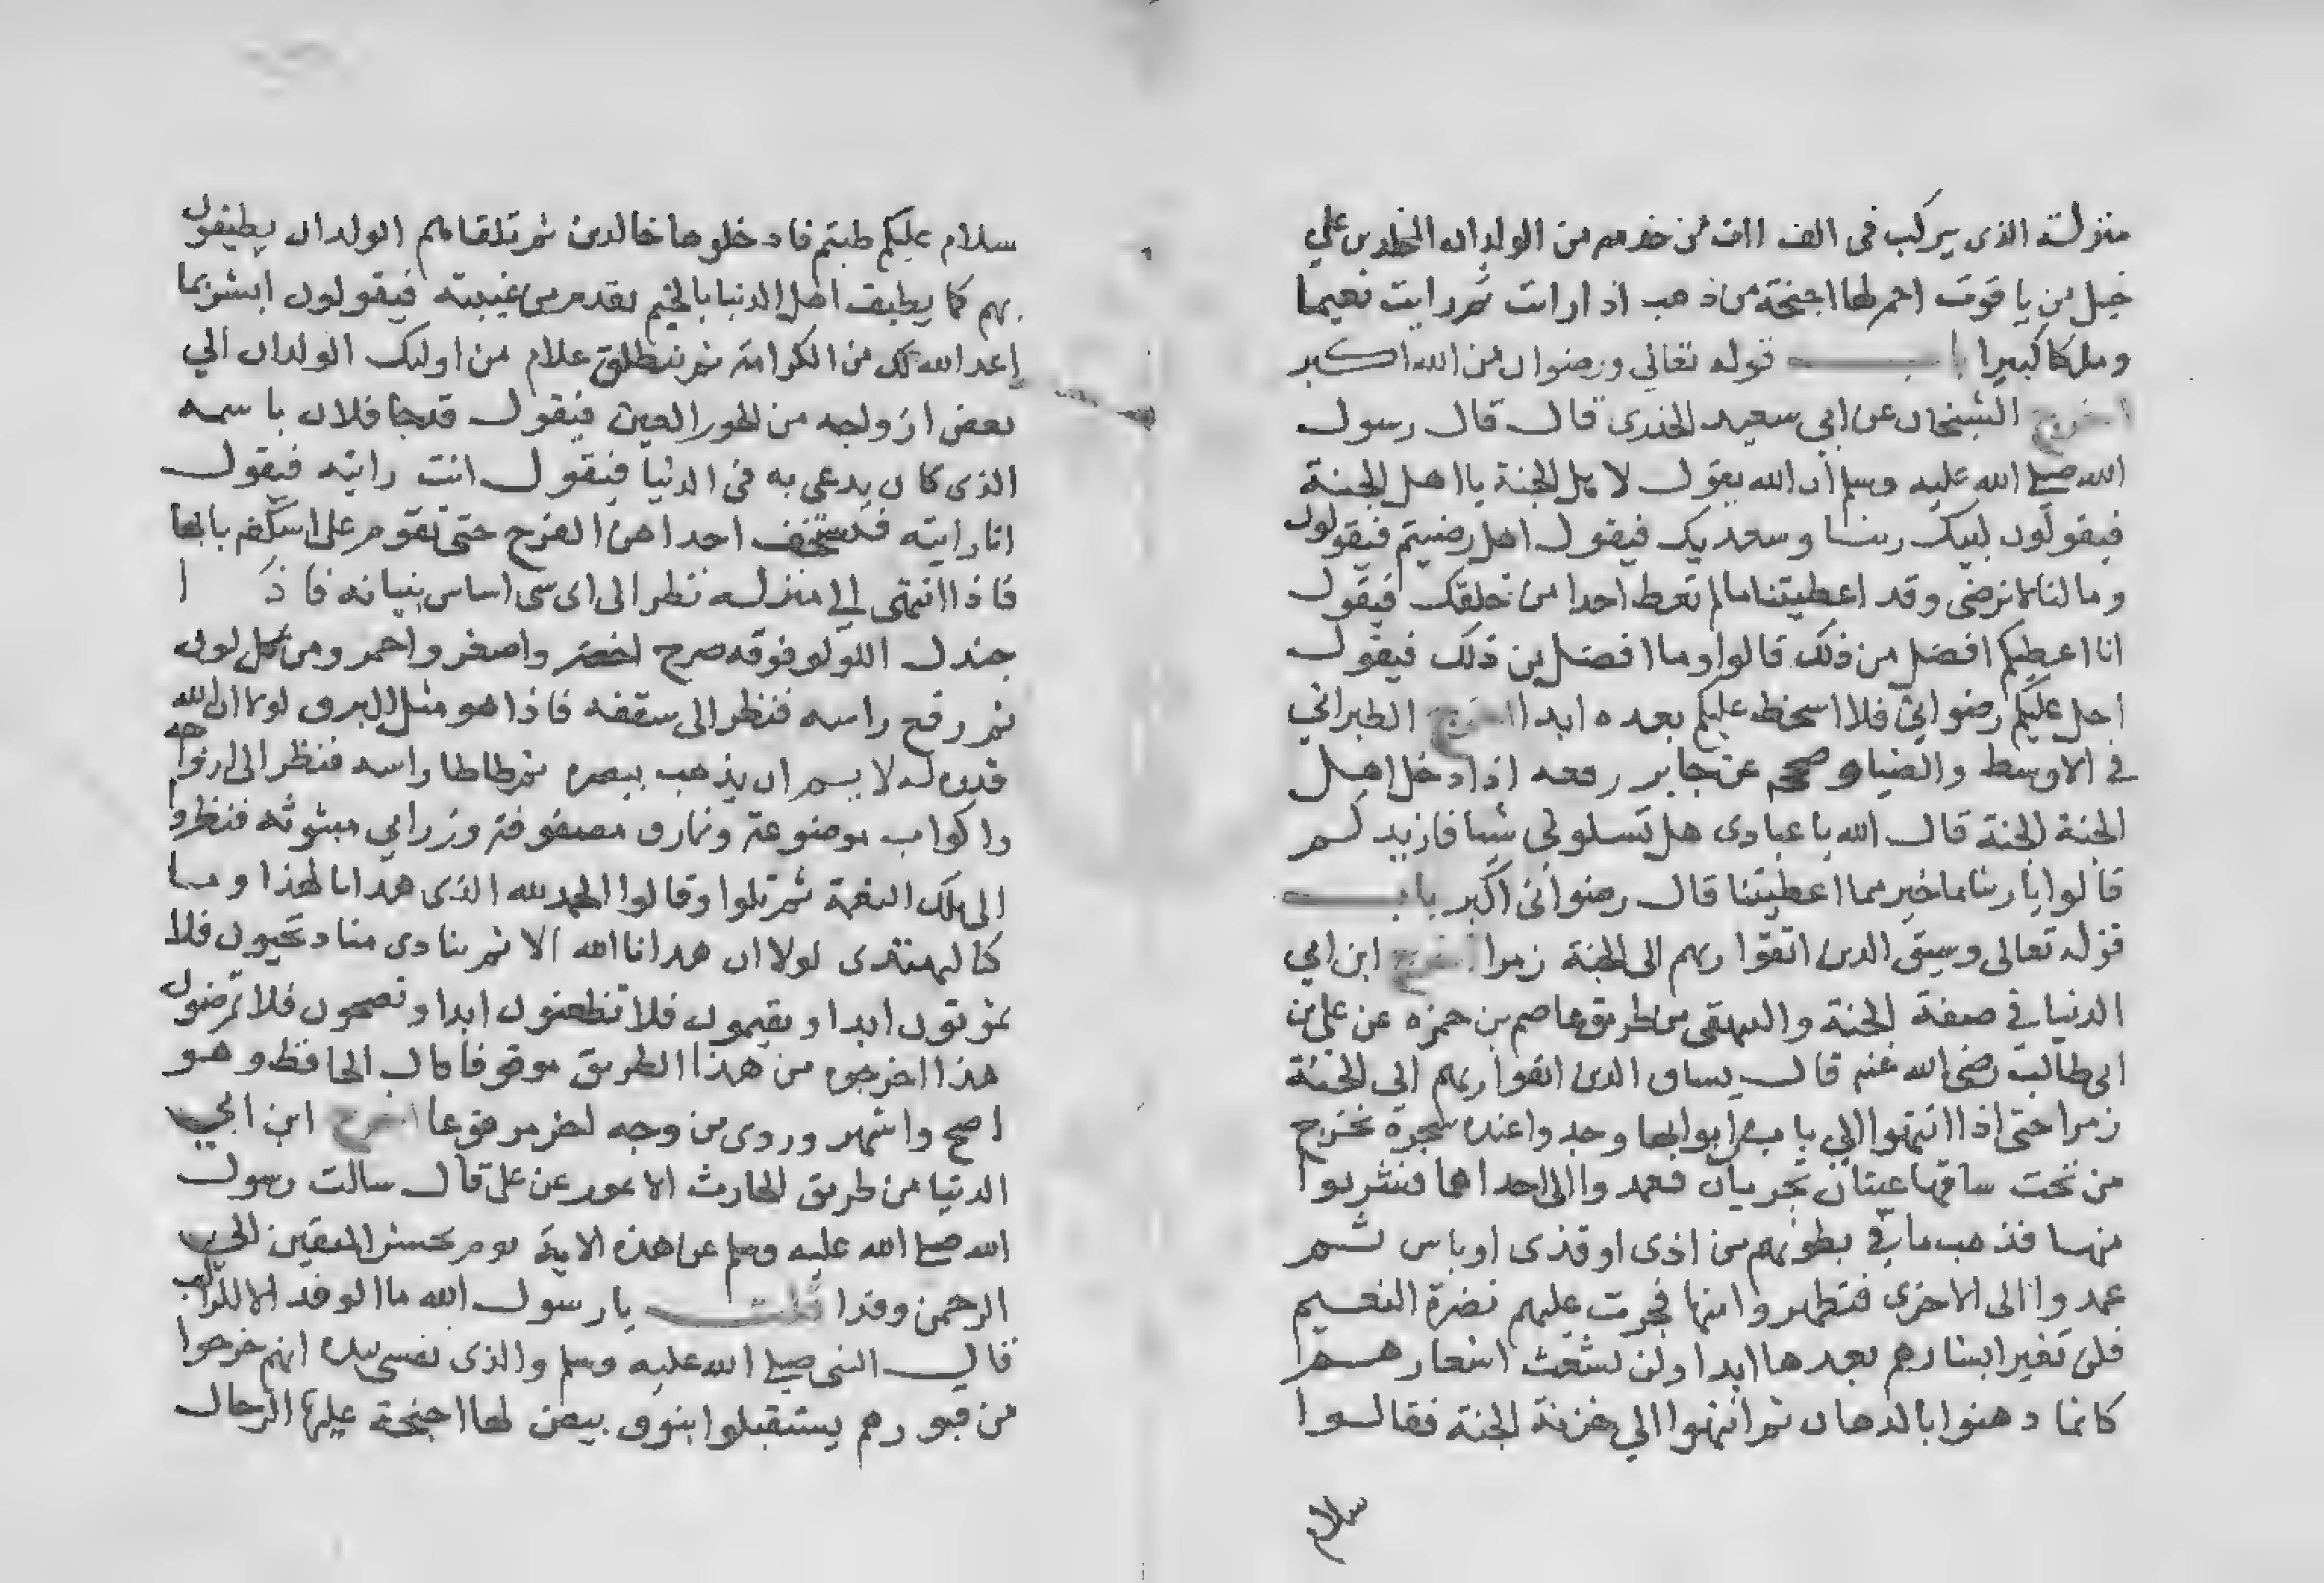 منزلة الذى يركب فى الف الف من خدمه من الولدان المخلدين على
خيل من ياقوت احمر لها اجنحة من ذهب اذا رايت ثم رايت نعيما
وملكا كبيرا باب قوله تعالي ورضوان من الله اكبر
اخرج الشيخان عن ابي سعيد الخدرى قال قال رسول
الله صلي الله عليه وسلم ان الله يقول لاهل الجنة يا اهل الجنة
فيقولون لبيك ربنا وسعديك فيقول هل رضيتم فيقولون
وما لنا لا نرضى وقد اعطيتنا ما لم تعط احدا من خلقك فيقول
انا اعطيكم افضل من ذلك قالوا وما افضل من ذلك فيقول
احل عليكم رضواني فلا اسخط عليكم بعده ابدا اخرج الطبراني
في الاوسط والضيا وصححه عن جابر رفعه اذا دخل اهل
الجنة الجنة قال الله يا عبادى هل تسلوني شيا فازيدكم
قالوا يا ربنا ما خير مما اعطيتنا قال رضوانى اكبر باب
قوله تعالى وسيق الدين اتقوا ربهم الى الجنة زمرا اخرج ابن ابي
الدنيا في صفة الجنة والبيهقى من طريق عاصم بن حمزه عن على بن
ابى طالب رضى الله عنه قال يساق الدين اتقوا ربهم الى الجنة
زمرا حتى اذا انتهوا الي باب من ابوابها وجدوا عنده شجرة تخرج
من تحت ساقها عينان تجريان فعمدوا الى احداهما فشربوا
منها فذهب ما في بطونهم من اذى او قذى او باس ثم
عمدوا الى الاخرى فتطهروا منها فجرت عليهم نضرة النعيم
فلن تغير ابشارهم بعدها ابدا ولن تشعث اشعارهم
كانما دهنوا بالدهان ثم انتهوا الي خزنة الجنة فقالوا
سلام
سلام عليكم طبتم فادخلوها خالدين ثم تلقاهم الولدان يطيفون
بهم كما يطيف اهل الدنيا بالحميم يقدم من غيبته فيقولون ابشر بما
اعد الله لك من الكرامة ثم ينطلق غلام من اوليك الولدان الي
بعض ازواجه من الحور العين فيقول قد جا فلان باسمه
الذى كان يدعى به فى الدنيا فيقول انت رايته فيقول
انا رايته فيستخف احداهن الفرح حتى تقوم على اسكفه بابها
فاذا انتهى الي منزله نظر الى اى شى اساس بنيانه فاذ ا
جندل اللولو فوقه صرح اخضر واصفر واحمر ومن كل لون
ثم رفع راسه فنظر الى سقفه فاذا هو مثل البرق لولا ان الله
قدره له لا يسم ان يذهب ببصره ثم طاطا راسه فنظر الى ازواجه
واكواب موضوعة ونمارق مصفوفة وزرابي مبثوثه فنظروا
الى تلك النعمة ثم تلوا وقالوا الحمد لله الذى هدانا لهذا وما
كنا لنهتدى لولا ان هدانا الله الا ثم ينادى مناد تحيون فلا
تموتون ابدا وتقيمون فلا تظعنون ابدا وتصحون فلا تمرضون
هذا اخرجوه من هذا الطريق موقوفا قال الحافظ وهو
اصح واشهر وروى من وجه اخر مرفوعا اخرج ابن ابي
الدنيا من طريق الحارث الاعور عن على قال سالت رسول
الله صلي الله عليه وسلم عن هذه الاية يوم يحشر المتقين الي
الرحمن وفدا قلت يا رسول الله ما الوفد الا الراكب
قال النبى صلي الله عليه وسلم والذى نفسى بيده انهم خرجوا
من قبورهم يستقبلوا بنوق بيض لها اجنحة عليها الرحال